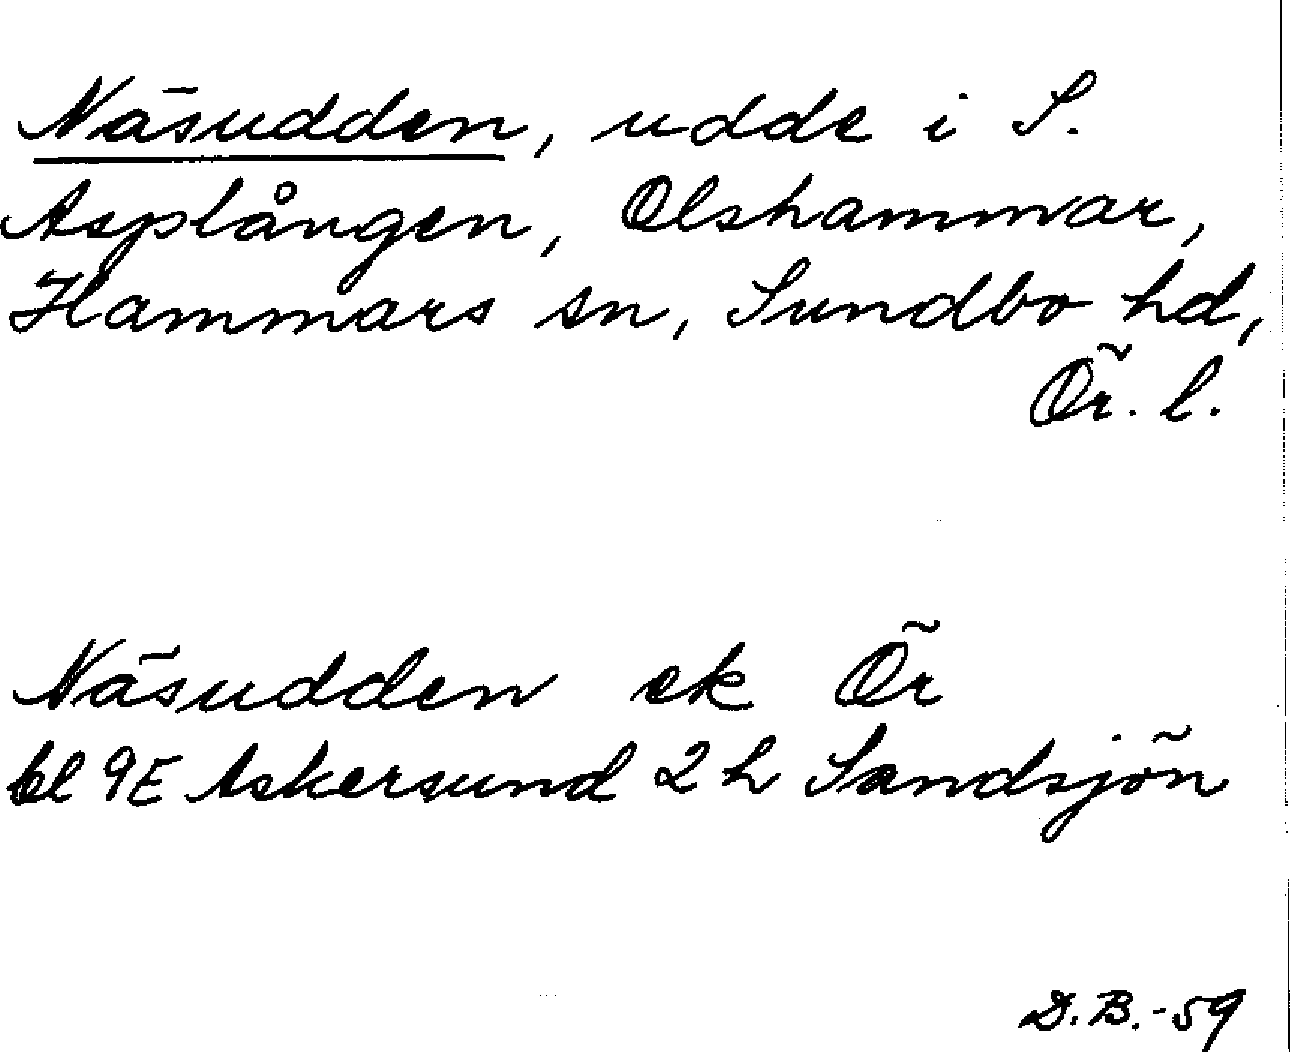 Näsudden, udde i S.
Asplången, Olshammar,
Hammars sn, Sundbo hd,
Ör. l.
Näsudden ek Ör
bl 9E Askersund 2 h Sandsjön
D.B.-59